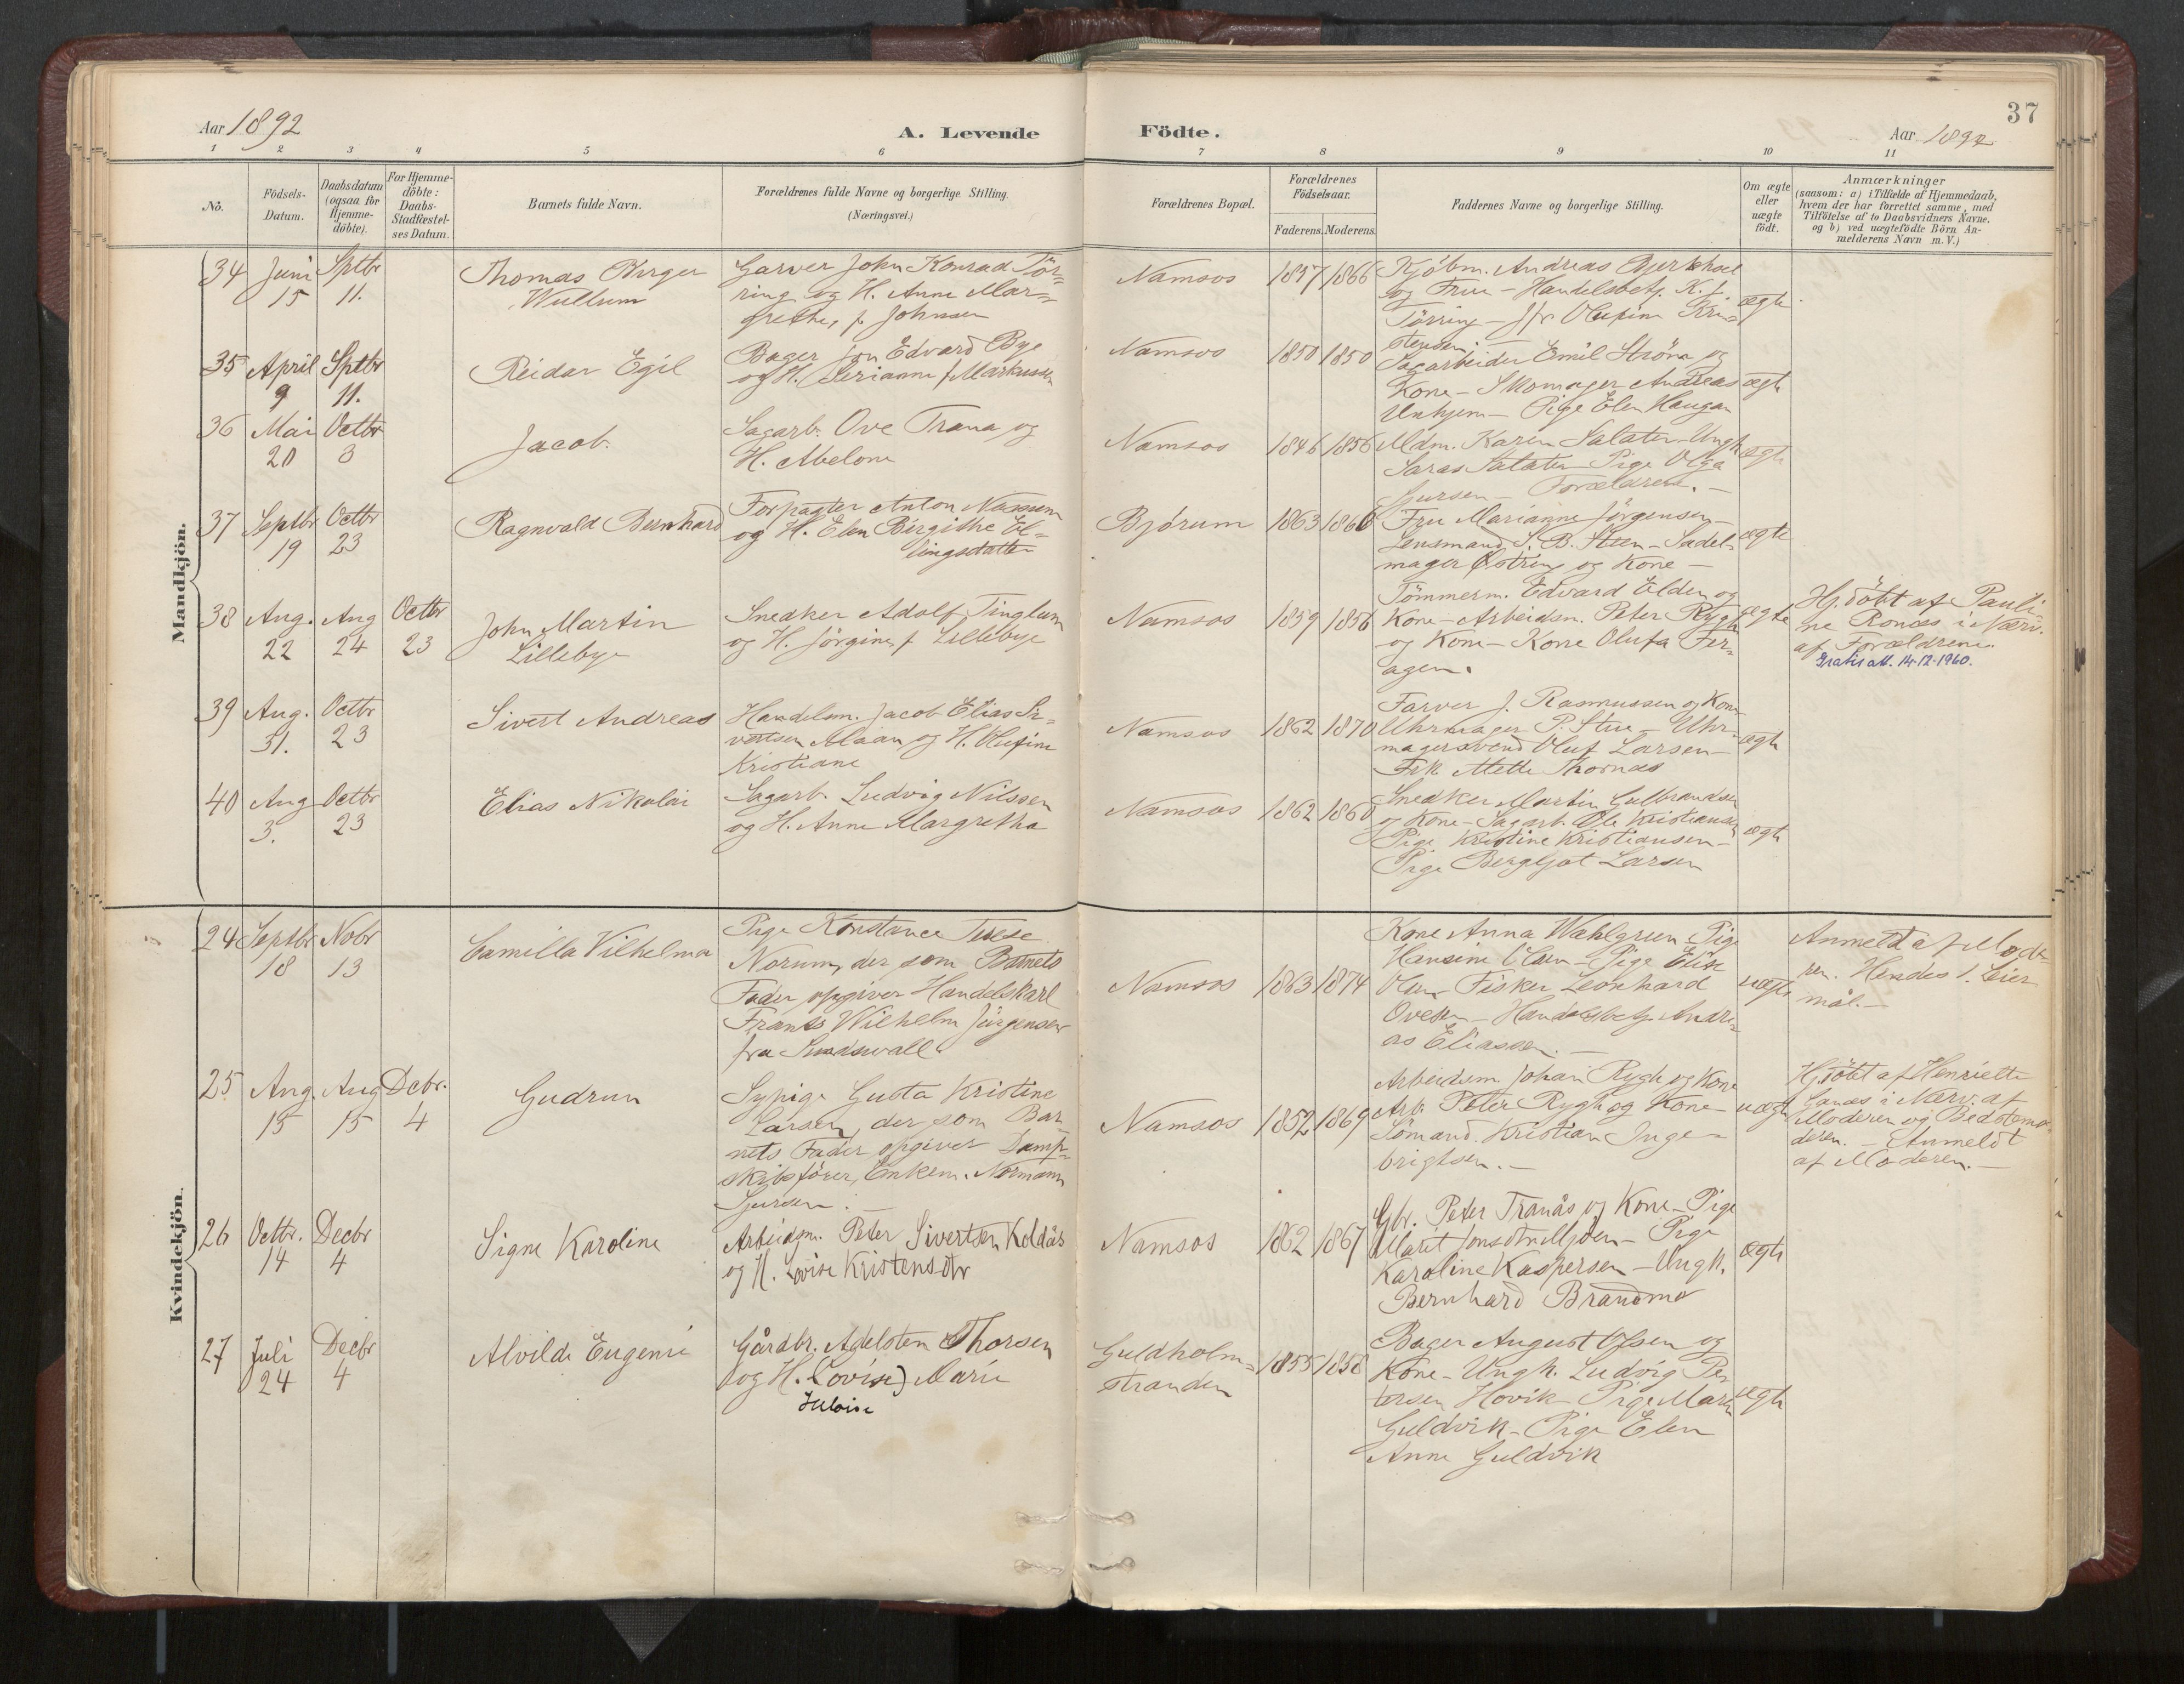 Aar 1892
A. Levende
Födte.
Aar 1892
37
1 2 3 4 5 6 7 8 9 10 11
No.
Födsels-
Datum.
Daabsdatum
(ogsaa for
Hjemme-
döbte).
For Hjemme-
döbte:
Daabs-
Stadfæstel-
ses Datum.
Barnets fulde Navn.
Forældrenes fulde Navne og borgerlige Stilling.
(Næringsvei.)
Forældrenes Bopæl.
Forældrenes
Födselsaar.
Faderens. Moderens.
Faddernes Navne og borgerlige Stilling.
Om ægte
eller
uægte
födt.
Anmærkninger
(saasom: a) i Tilfælde af Hjemmedaab,
hvem der har forrettet samme, med
Tilföielse af to Daabsvidners Navne,
og b) ved uægtefödte Börn An-
melderens Navn m. V.)
Mandkjön.
34 Juni 15 Sptbr 11.
Thomas Birger
Wullum
Garver John Konrad Tör-
ring og H. Anne Mar-
grethe, f. Johnsen
Namsos 1857 1866
Kjöbm. Andreas Bjerkhoel
og Frue - Handelsbetj. K. J.
Törring - Jfr Olufine Kri-
stensen. -
ægte
35 April 9 Sptbr 11.
Reidar Egil
Bager Jon Edvard Bye
og H. Serianne f. Markussen
Namsos 1850 1850
Sagarbeider Emil Ströna og
Kone - Skomager Andreas
Unhjem - Pige Elen Haugan
ægte
36 Mai 20 Octbr 3
Jacob.
Sagarb. Ove Trana og
H. Abelone
Namsos 1846 1856
Mdm. Karen Salater - Ungk.
Saras Salater - Pige Olga
Sjursen - Forældrene. -
ægte
37 Septbr 19 Octbr 23
Ragnvald Bernhard
Forpagter Anton Nassum
og H. Elen Birgithe El-
lingsdatter
Björum 1863 1866
Fru Marianne Jörgensen -
Lensmand S. B. Steen - Sadel-
mager Östring og Kone -
ægte
38 Aug. 22 Aug 24 Octbr 23
John Martin
Lillebye
Snedker Adolf Tinglum
og H. Jörgine, f. Lillebye
Namsos 1859 1856
Tömmerm. Edvard Elden og
Kone - Arbeidsm. Peter Rygh
og Kone - Kone Olufa Fer-
agen.
ægte
Hj.döbt af Pauli-
ne Ronæs i Nærv.
af Forældrene.
Gratis att. 14-12-1960.
39 Aug. 31. Octbr 23
Sivert Andreas
Handelsm. Jacob Elias Si-
vertsen Alaan og H. Olufine
Kristiane
Namsos 1862 1870
Farver J. Rasmussen og Kone
Uhrmager P. Stue - Uhr-
magersvend Oluf Larsen -
Frk Mette Thornæs
ægte
40 Aug 3. Octbr 23
Elias Nikolai
Sagarb. Ludvig Nilssen
og H. Anne Margretha
Namsos 1862 1860
Snedker Martin Gulbrandsen
og Kone - Sagarb. Ole Kristiansen
Pige Kristine Kristiansen -
Pige Bergljot Larsen
ægte
Kvindekjön.
24 Septbr 18 Nobr 13
Camilla Vilhelma
Pige Konstance Terese
Norum, der som Barnets
Fader opgiver Handelskarl
Frants Wilhelm Jürgensen
fra Sundswall.
Namsos 1863 1874
Kone Anna Wahlgreen - Pige
Hansine Olsen - Pige Elise
Olsen - Fisker Leonhard
Ovesen - Handelsbetj. Andre-
as Eliassen. -
uægte
Anmeldt af Mode-
ren. Hendes 1. Leier-
mål. -
25 Aug. 15 Aug 15 Dcbr. 4
Gudrun
Sypige Gusta Kristine
Larsen, der som Bar-
nets Fader opgiver Damp-
skibsförer, Enkem. Normann
Sjursen. -
Namsos 1852 1869
Arbeidsm. Johan Rygh og Kone
Arb. Peter Rygh og Kone -
Sömand. Kristian Inge-
brigtsen. -
uægte
Hj.döbt af Henriette
Ganæs i Nærv. af
Moderen og Bedstemo-
deren. - Anmeldt
af Moderen. -
26 Octbr. 14 Decbr 4
Signe Karoline
Arbeidsm. Peter Sivertsen Keldås
og H. Lovise Kristensdtr
Namsos 1862 1867
Gbr. Peter Tranås og Kone - Pige
Marit Jonsdtr Mjöen - Pige
Karoline Kaspersen - Ungk.
Bernhard Brandmo
ægte
27 Juli 24 Decbr 4
Alvilde Eugenie
Gårdbr. Adelsten Thorsen
og H. (Lovise) Marie
Heloise
Guldholm-
stranden 1855 1858
Bager August Olsen og
Kone - Ungk. Ludvig Pe-
tersen Hovik - Pige Martha
Guldvik - Pige Elen
Anne Guldvik
ægte